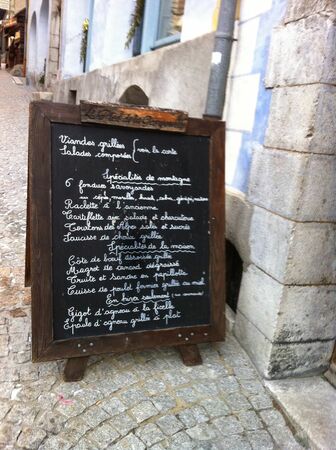 Viandes grillées
Salades composées } voir la carte
Spécialités de montagne
6 fondues savoyardes
au cèpes, morilles,
Raclette à l'ancienne
Tartiflette avec salade et charcuterie
Tourtons des Alpes salés et sucrés
Saucisse de choux grillée
Spécialités de la maison
Côte de bœuf désossée grillée
Magret de canard dégraissé
Truite et sandre en papillotte
Cuisse de poulet fermier grillée au miel
En hiver seulement
Gigot d'agneau à la ficelle
Epaule d'agneau grillée à plat